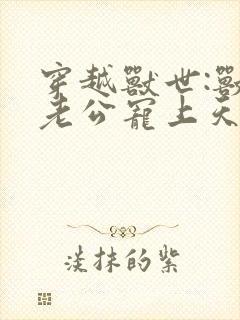 穿越獸世:獸
老公寵上天
淡抹的紫